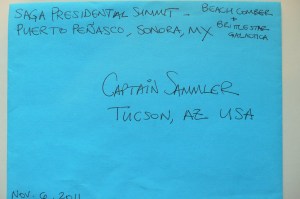 SAGA PRESIDENTAL SUMMIT - BEACH COMBER
+
PUERTO PEÑASCO, SONORA, MX BRITTLESTAR
GALACTICA
CAPTAIN SAMMLER
TUCSON, AZ USA
NOV. 6, 2011